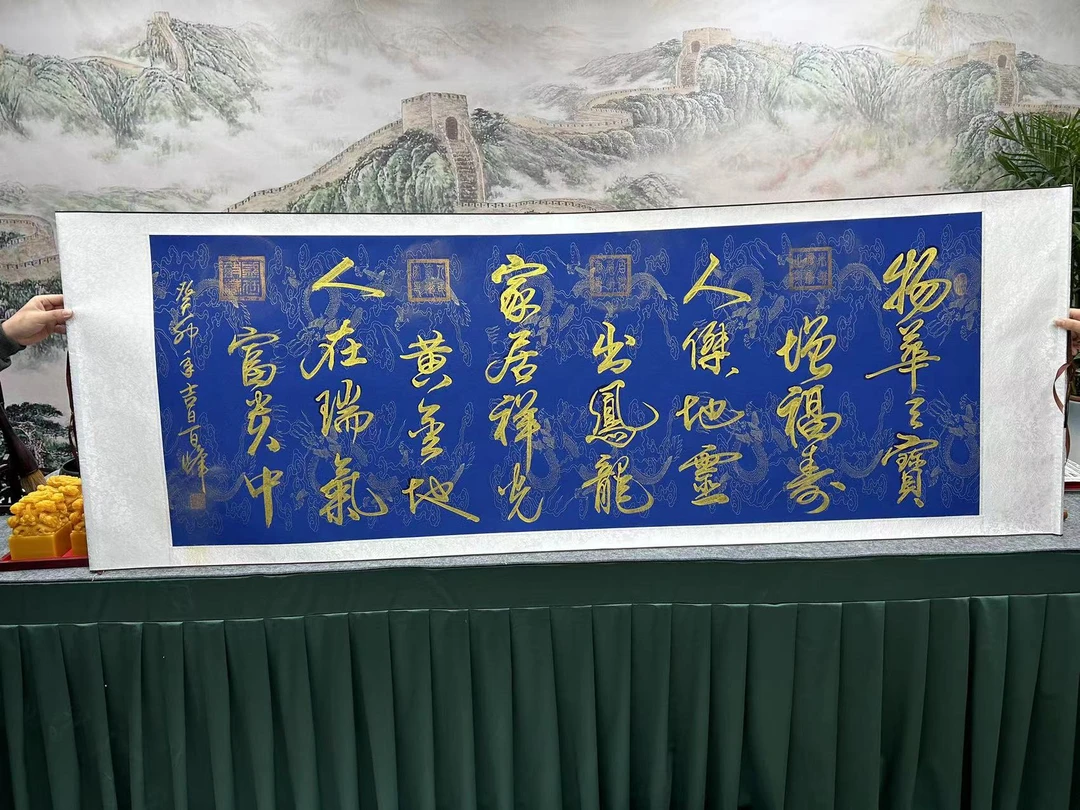 物華天寶
增福寿
人傑地靈
出鳳龍
家居祥光
黄金地
人在瑞氣
富贵中
癸卯年吉日百峰